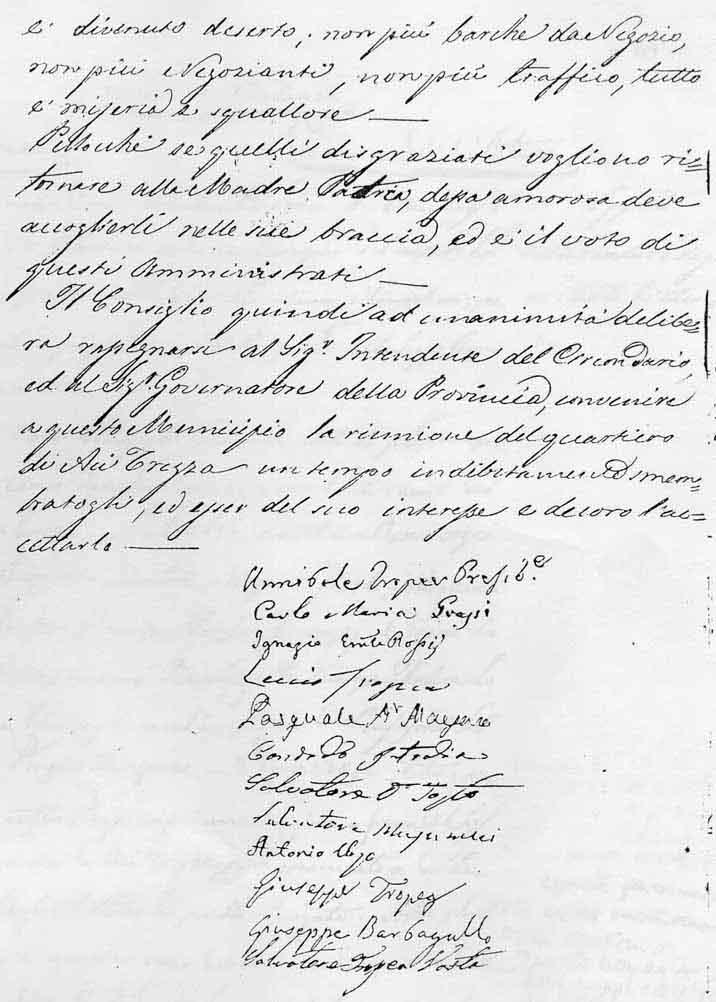 è divenuto deserto, non più barche da Negozio,
non più Negozianti, non più traffico, tutto
è miseria e squallore —
Perlocchè se quelli disgraziati vogliono ri=
tornare alla Madre Patria, dessa amorosa deve
accoglierli nelle sue braccia, ed è il voto di
questi Amministrati —
Il Consiglio quindi ad unanimità delibe=
ra rassegnarsi al Sigr. Intendente del Circondario,
ed al Sigr. Governatore della Provincia, convenire
a questo Municipio la riunione del quartiero
di Aci Trezza un tempo indebitamente smem=
bratogli, ed esser del suo interesse e decoro l'ac=
cettarlo —
Annibale Tropea
Carlo Maria Grassi
Ignazio Rossi
Lucio Tropea
Pasquale
Salvatore
Salvatore
Antonio
Giuseppe Tropea
Giuseppe Barbagallo
Salvatore Tropea Vasta